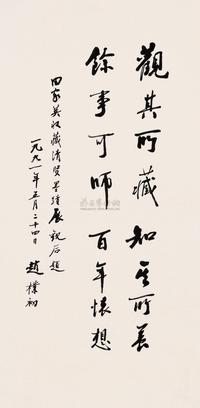 觀其所藏 知其所養
餘事可師 百年懷想
田家英收藏清賢墨跡展觀後題
一九九一年五月二十四日 趙樸初